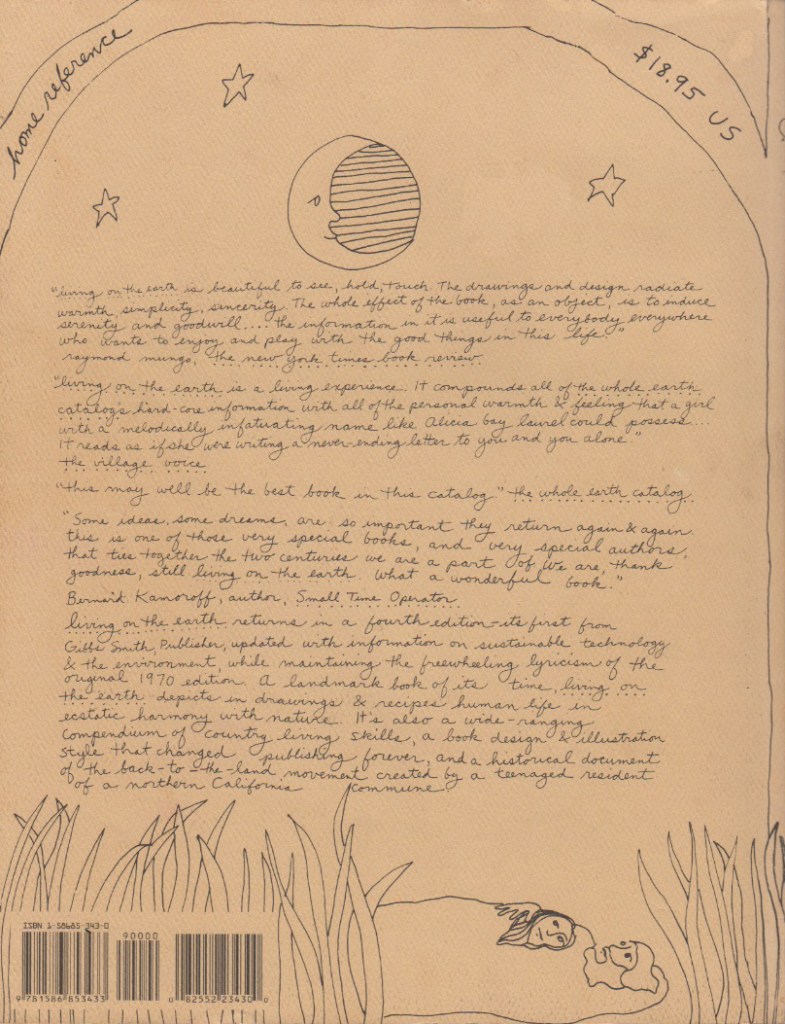 home reference
$18.95 US
"living on the earth is beautiful to see, hold, touch. The drawings and design radiate
warmth, simplicity, sincerity. The whole effect of the book, as an object, is to induce
serenity and goodwill.... the information in it is useful to everybody everywhere
who wants to enjoy and play with the good things in this life."
raymond mungo, the new york times book review.
"living on the earth is a living experience. It compounds all of the whole earth
catalog's hard-core information with all of the personal warmth & feeling that a girl
with a melodically infatuating name like Alicia bay laurel could possess....
It reads as if she were writing a never-ending letter to you and you alone."
the village voice
"this may well be the best book in this catalog." the whole earth catalog.
"Some ideas, some dreams, are so important they return again & again.
this is one of those very special books, and very special authors,
that ties together the two centuries we are a part of. We are, thank
goodness, still living on the earth. What a wonderful book."
Bernard Kamoroff, author, Small Time Operator
living on the earth returns in a fourth edition-its first from
Gibbs Smith, Publisher, updated with information on sustainable technology
& the environment, while maintaining the freewheeling lyricism of the
original 1970 edition. A landmark book of its time, living on
the earth depicts in drawings & recipes human life in
ecstatic harmony with nature. It's also a wide-ranging
compendium of country living skills, a book design & illustration
style that changed publishing forever, and a historical document
of the back-to-the-land movement created by a teenaged resident
of a northern California commune.
ISBN 1-58685-343-0
90000
9 781586 853433
0 82552 23430 0